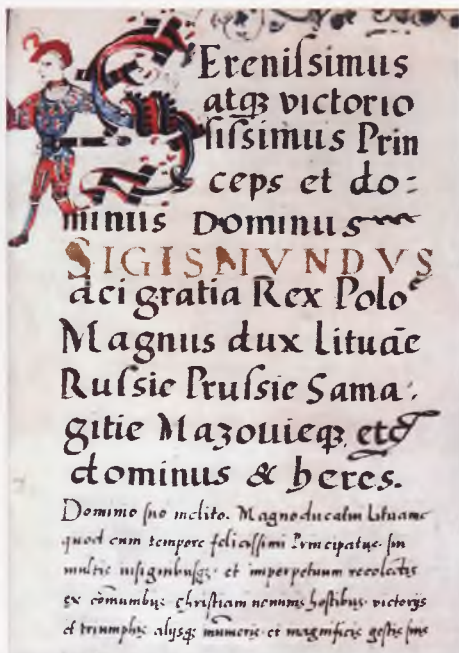 Serenissimus
atqꝫ victorio
sissimus Prin
ceps et do:
minus Dominus
SIGISMVNDVS
dei gratia Rex Polo
Magnus dux Lituāe
Russie Prussie Sama.
gitie Mazouieqꝫ etc
dominus & heres.
Domino suo inclito. Magnoducatui Lituanie
quod cum tempore felicissimi Principatus sui
multis insignibusqꝫ et imperpetuum recolendis
ex cōmunibus christiani nominis hostibus victorijs
et triumphis alijsqꝫ muneris et magnificis gestis suis